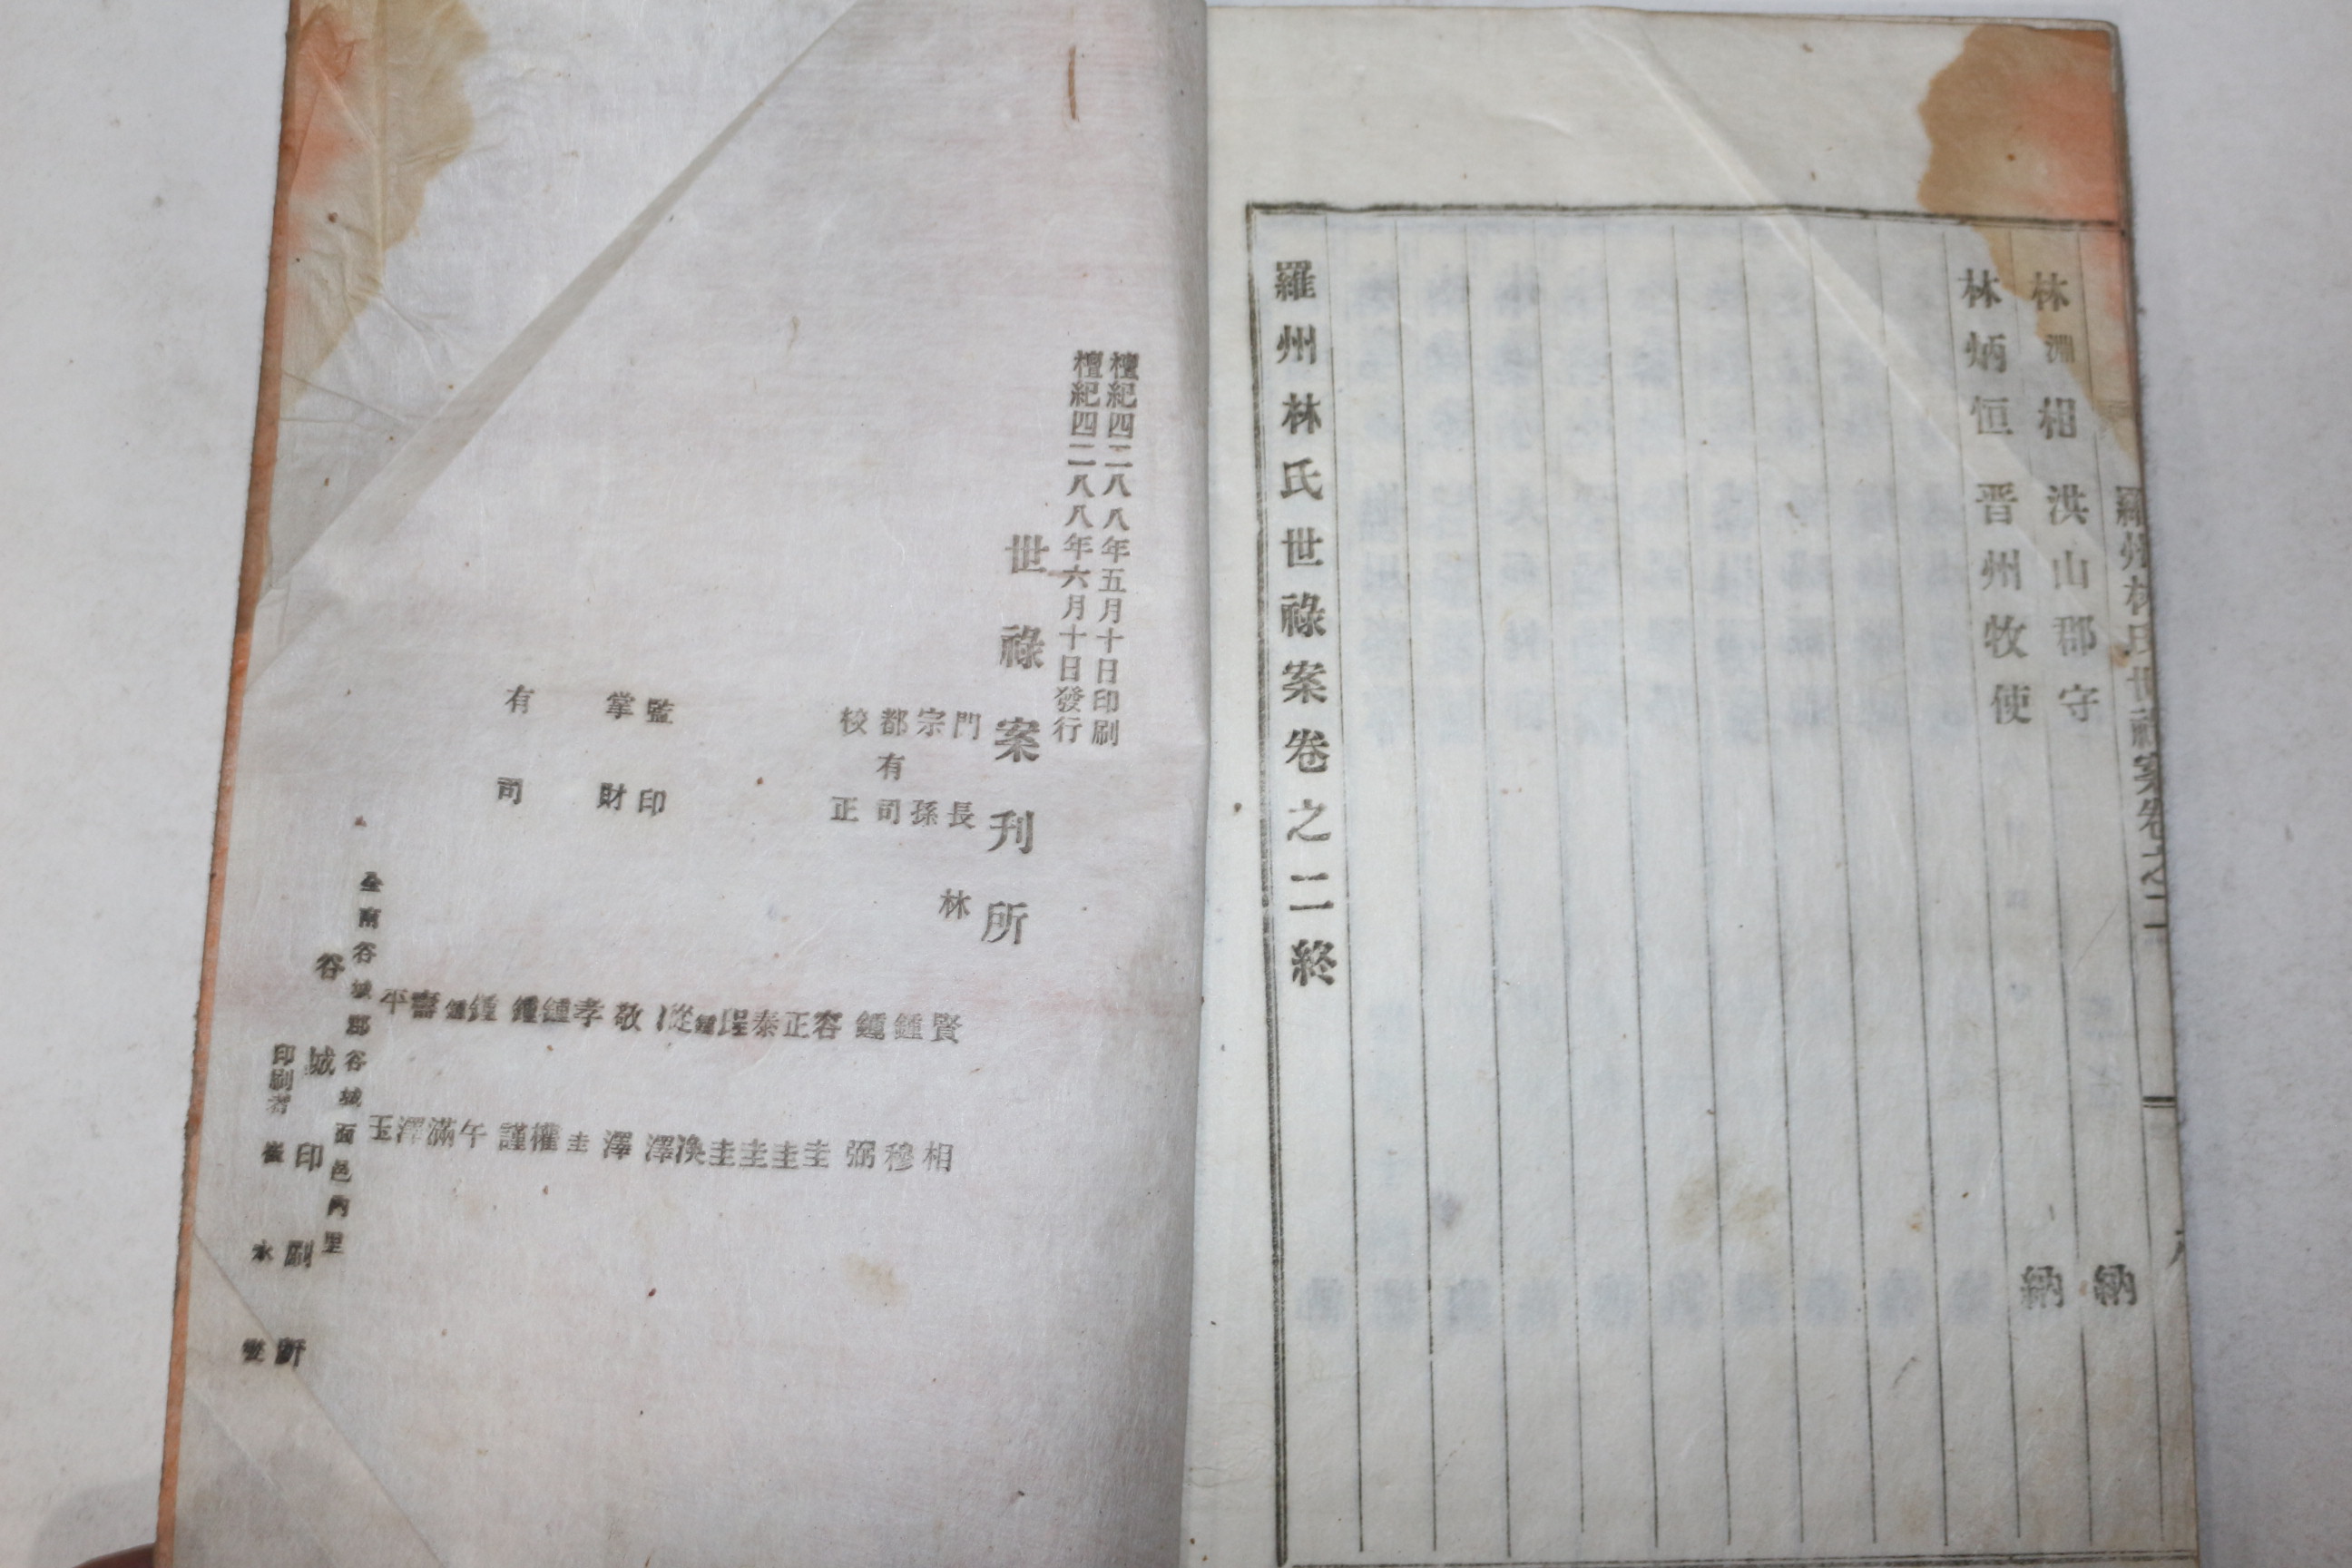 林淵相 洪山郡守 納
林炳恒 晋州牧使 納
羅州林氏世祿案卷之二終
檀紀四二八八年五月十日印刷
檀紀四二八八年六月十日發行
世祿案刊所
門長 林賢相
宗孫 鍾穆
都有司 鍾弼
校正 容圭
正圭
泰圭
珵圭
鍾渙
從澤
監印 敬澤
掌財 孝圭
鍾權
鍾謹
有司 鍾午
鍾滿
壽澤
平玉
全南谷城郡谷城面邑內里
谷城印刷所
印刷者 崔永燮